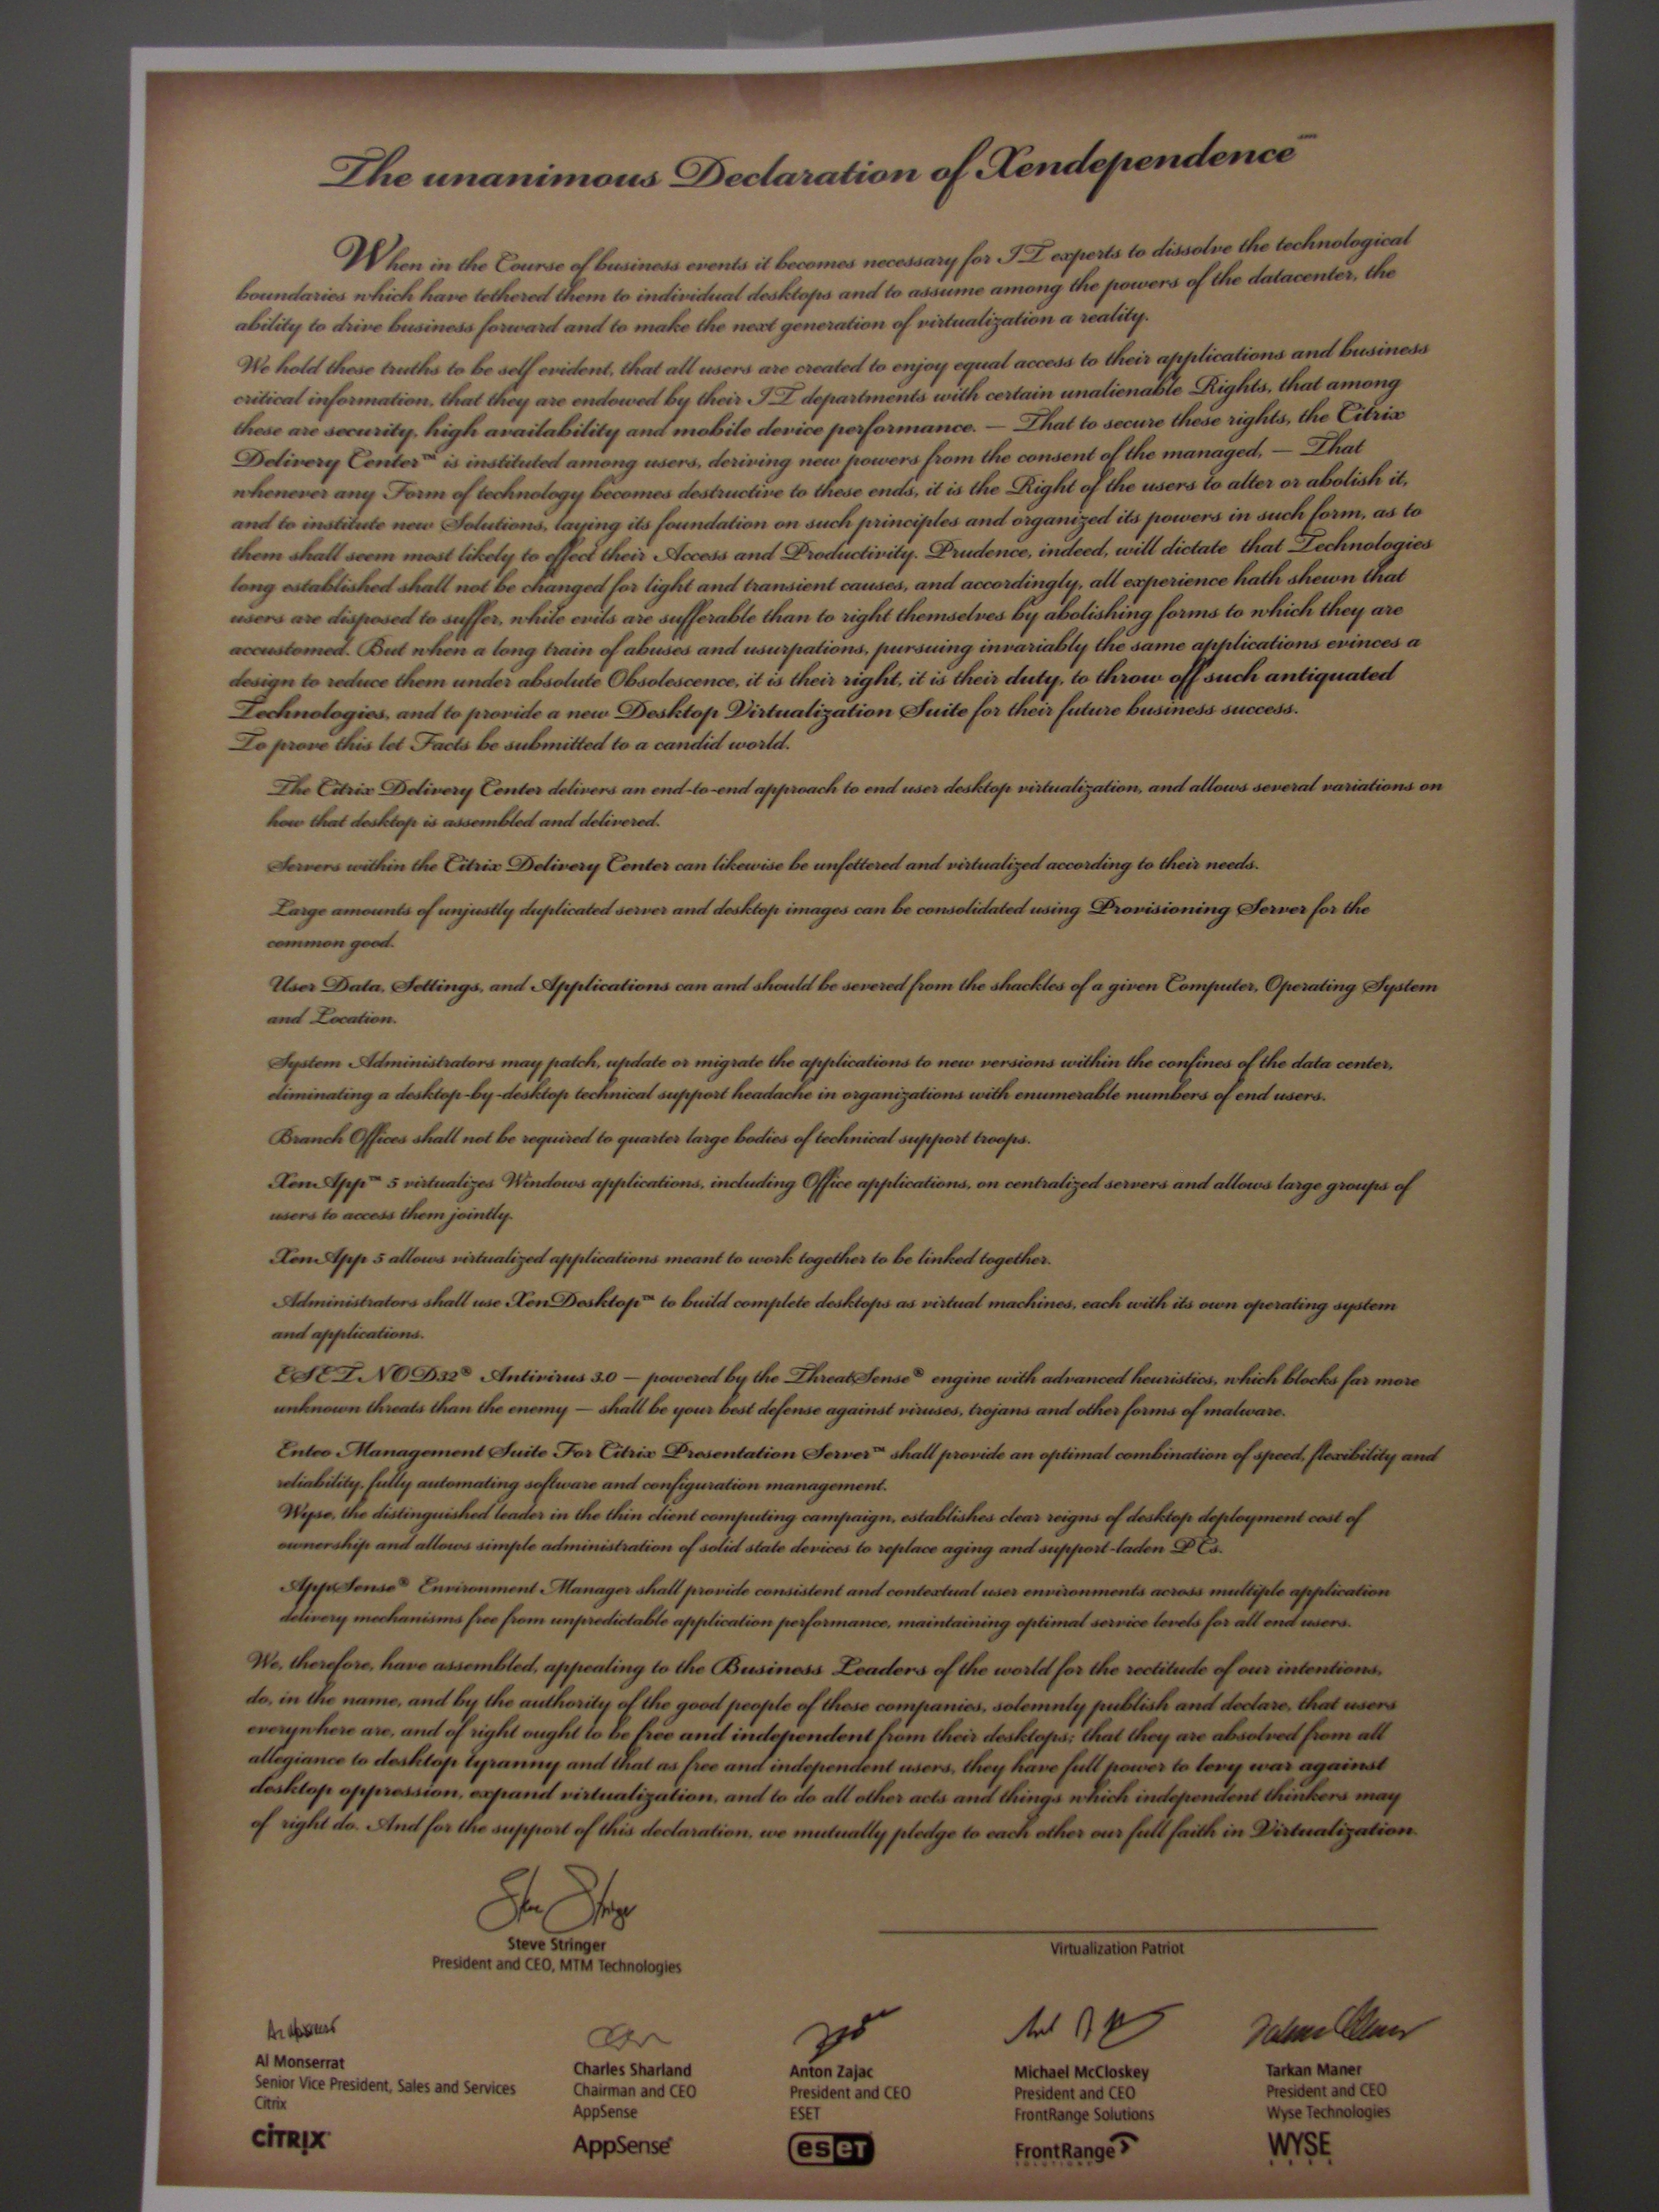 The unanimous Declaration of Xendependence
When in the Course of business events it becomes necessary for IT experts to dissolve the technological
boundaries which have tethered them to individual desktops and to assume among the powers of the datacenter, the
ability to drive business forward and to make the next generation of virtualization a reality.
We hold these truths to be self evident, that all users are created to enjoy equal access to their applications and business
critical information, that they are endowed by their IT departments with certain unalienable Rights, that among
these are security, high availability and mobile device performance. — That to secure these rights, the Citrix
Delivery Center™ is instituted among users, deriving new powers from the consent of the managed, — That
whenever any Form of technology becomes destructive to these ends, it is the Right of the users to alter or abolish it,
and to institute new Solutions, laying its foundation on such principles and organized its powers in such form, as to
them shall seem most likely to effect their Access and Productivity. Prudence, indeed, will dictate that Technologies
long established shall not be changed for light and transient causes, and accordingly, all experience hath shewn that
users are disposed to suffer, while evils are sufferable than to right themselves by abolishing forms to which they are
accustomed. But when a long train of abuses and usurpations, pursuing invariably the same applications evinces a
design to reduce them under absolute Obsolescence, it is their right, it is their duty, to throw off such antiquated
Technologies, and to provide a new Desktop Virtualization Suite for their future business success.
To prove this let Facts be submitted to a candid world.
The Citrix Delivery Center delivers an end-to-end approach to end user desktop virtualization, and allows several variations on
how that desktop is assembled and delivered.
Servers within the Citrix Delivery Center can likewise be unfettered and virtualized according to their needs.
Large amounts of unjustly duplicated server and desktop images can be consolidated using Provisioning Server for the
common good.
User Data, Settings, and Applications can and should be severed from the shackles of a given Computer, Operating System
and Location.
System Administrators may patch, update or migrate the applications to new versions within the confines of the data center,
eliminating a desktop-by-desktop technical support headache in organizations with enumerable numbers of end users.
Branch Offices shall not be required to quarter large bodies of technical support troops.
XenApp™ 5 virtualizes Windows applications, including Office applications, on centralized servers and allows large groups of
users to access them jointly.
XenApp 5 allows virtualized applications meant to work together to be linked together.
Administrators shall use XenDesktop™ to build complete desktops as virtual machines, each with its own operating system
and applications.
ESET NOD32® Antivirus 3.0 — powered by the ThreatSense® engine with advanced heuristics, which blocks far more
unknown threats than the enemy — shall be your best defense against viruses, trojans and other forms of malware.
Enteo Management Suite For Citrix Presentation Server™ shall provide an optimal combination of speed, flexibility and
reliability, fully automating software and configuration management.
Wyse, the distinguished leader in the thin client computing campaign, establishes clear reigns of desktop deployment cost of
ownership and allows simple administration of solid state devices to replace aging and support-laden PCs.
AppSense® Environment Manager shall provide consistent and contextual user environments across multiple application
delivery mechanisms free from unpredictable application performance, maintaining optimal service levels for all end users.
We, therefore, have assembled, appealing to the Business Leaders of the world for the rectitude of our intentions,
do, in the name, and by the authority of the good people of these companies, solemnly publish and declare, that users
everywhere are, and of right ought to be free and independent from their desktops; that they are absolved from all
allegiance to desktop tyranny and that as free and independent users, they have full power to levy war against
desktop oppression, expand virtualization, and to do all other acts and things which independent thinkers may
of right do. And for the support of this declaration, we mutually pledge to each other our full faith in Virtualization.
Steve Stringer
Steve Stringer
President and CEO, MTM Technologies
Virtualization Patriot
Al Monserrat
Senior Vice President, Sales and Services
Citrix
CITRIX
Charles Sharland
Chairman and CEO
AppSense
AppSense
Anton Zajac
President and CEO
ESET
eseT
Michael McCloskey
President and CEO
FrontRange Solutions
FrontRange
SOLUTIONS
Tarkan Maner
President and CEO
Wyse Technologies
WYSE